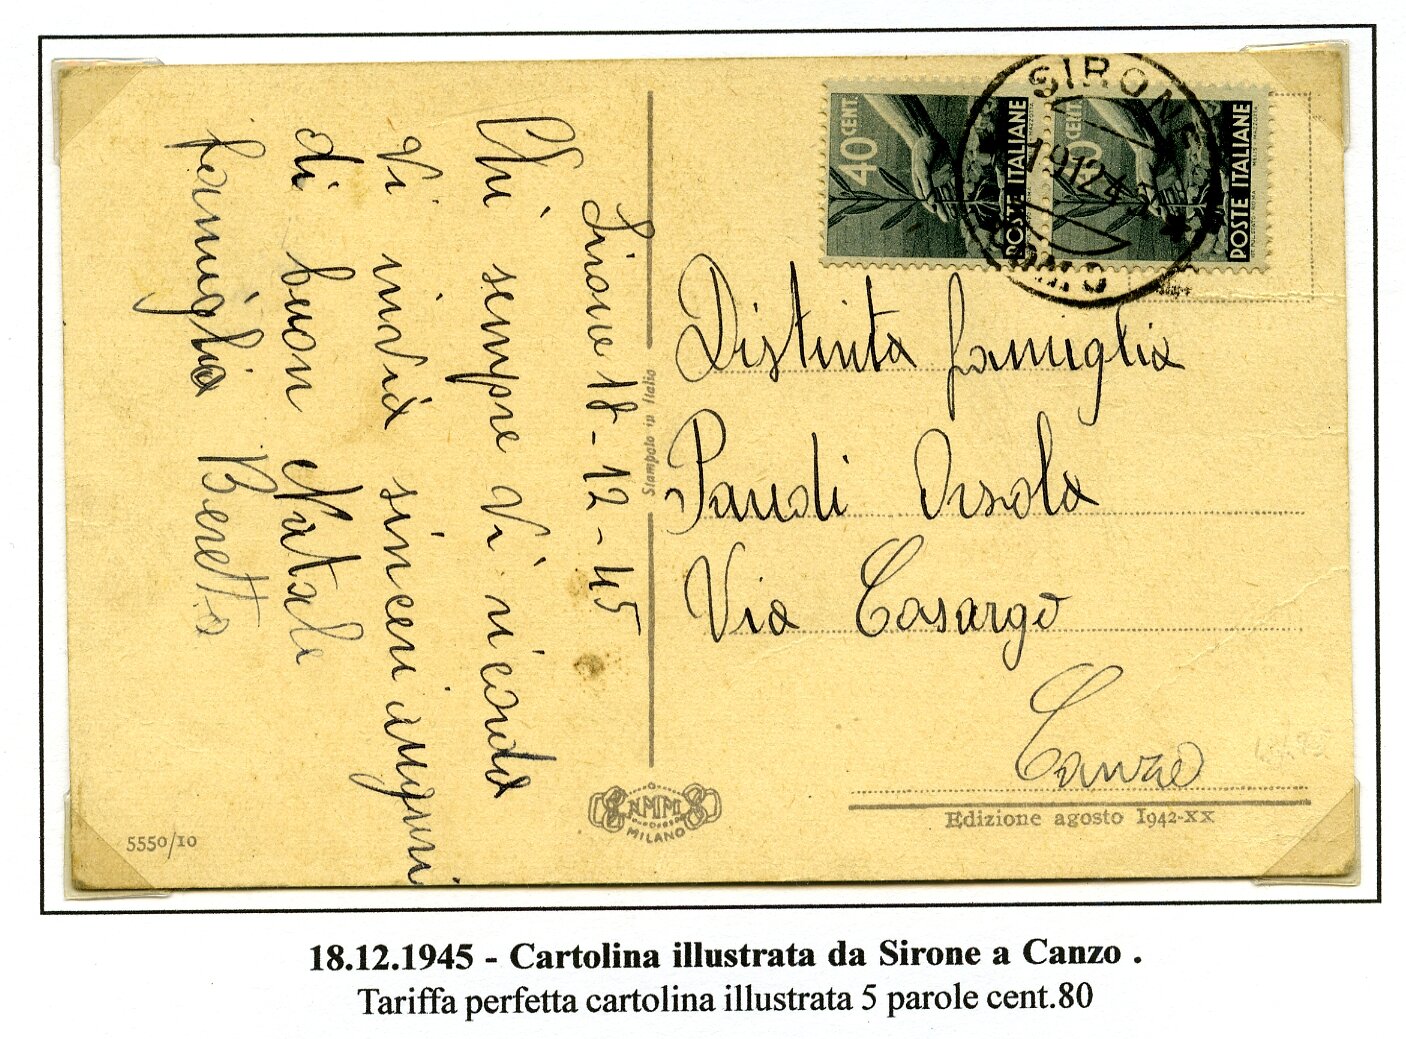 40 CENT. POSTE ITALIANE
40 CENT. POSTE ITALIANE
SIRONE
19.12.45
COMO
Distinta famiglia
Paredi Orsola
Via Casargo
Canzo
Edizione agosto 1942-XX
Stampato in Italia
NMM
MILANO
5550/10
Sirone 18-12-45
Chi sempre Vi ricorda
Vi invia sinceri auguri
di buon Natale
famiglia Beretta
18.12.1945 - Cartolina illustrata da Sirone a Canzo .
Tariffa perfetta cartolina illustrata 5 parole cent.80